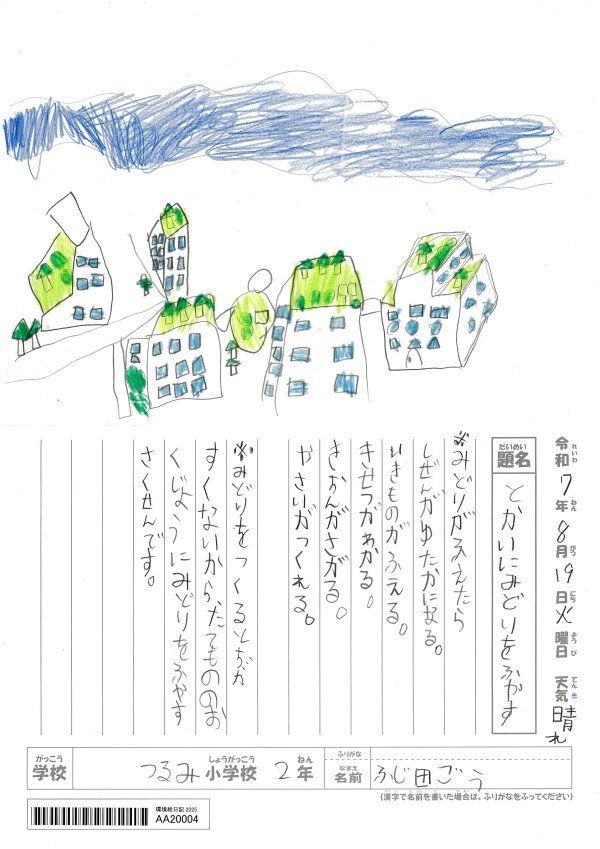 令和7年8月19日火曜日 天気晴れ
れいわ ねん がつ にち ようび てんき
だいめい
題名 とかいにみどりをふやす
※みどりがふえたら
しぜんがゆたかになる。
いきものがふえる。
きせつがわかる。
きおんがさがる。
やさいがつくれる。
※みどりをつくるとちが
すくないから、たてもののお
くじょうにみどりをふやす
さくせんです。
がっこう しょうがっこう ねん ふりがな
学校 つるみ小学校 2年
なまえ
名前 ふじ田ごう
(漢字で名前を書いた場合は、ふりがなをふってください)
環境絵日記 2025
AA20004